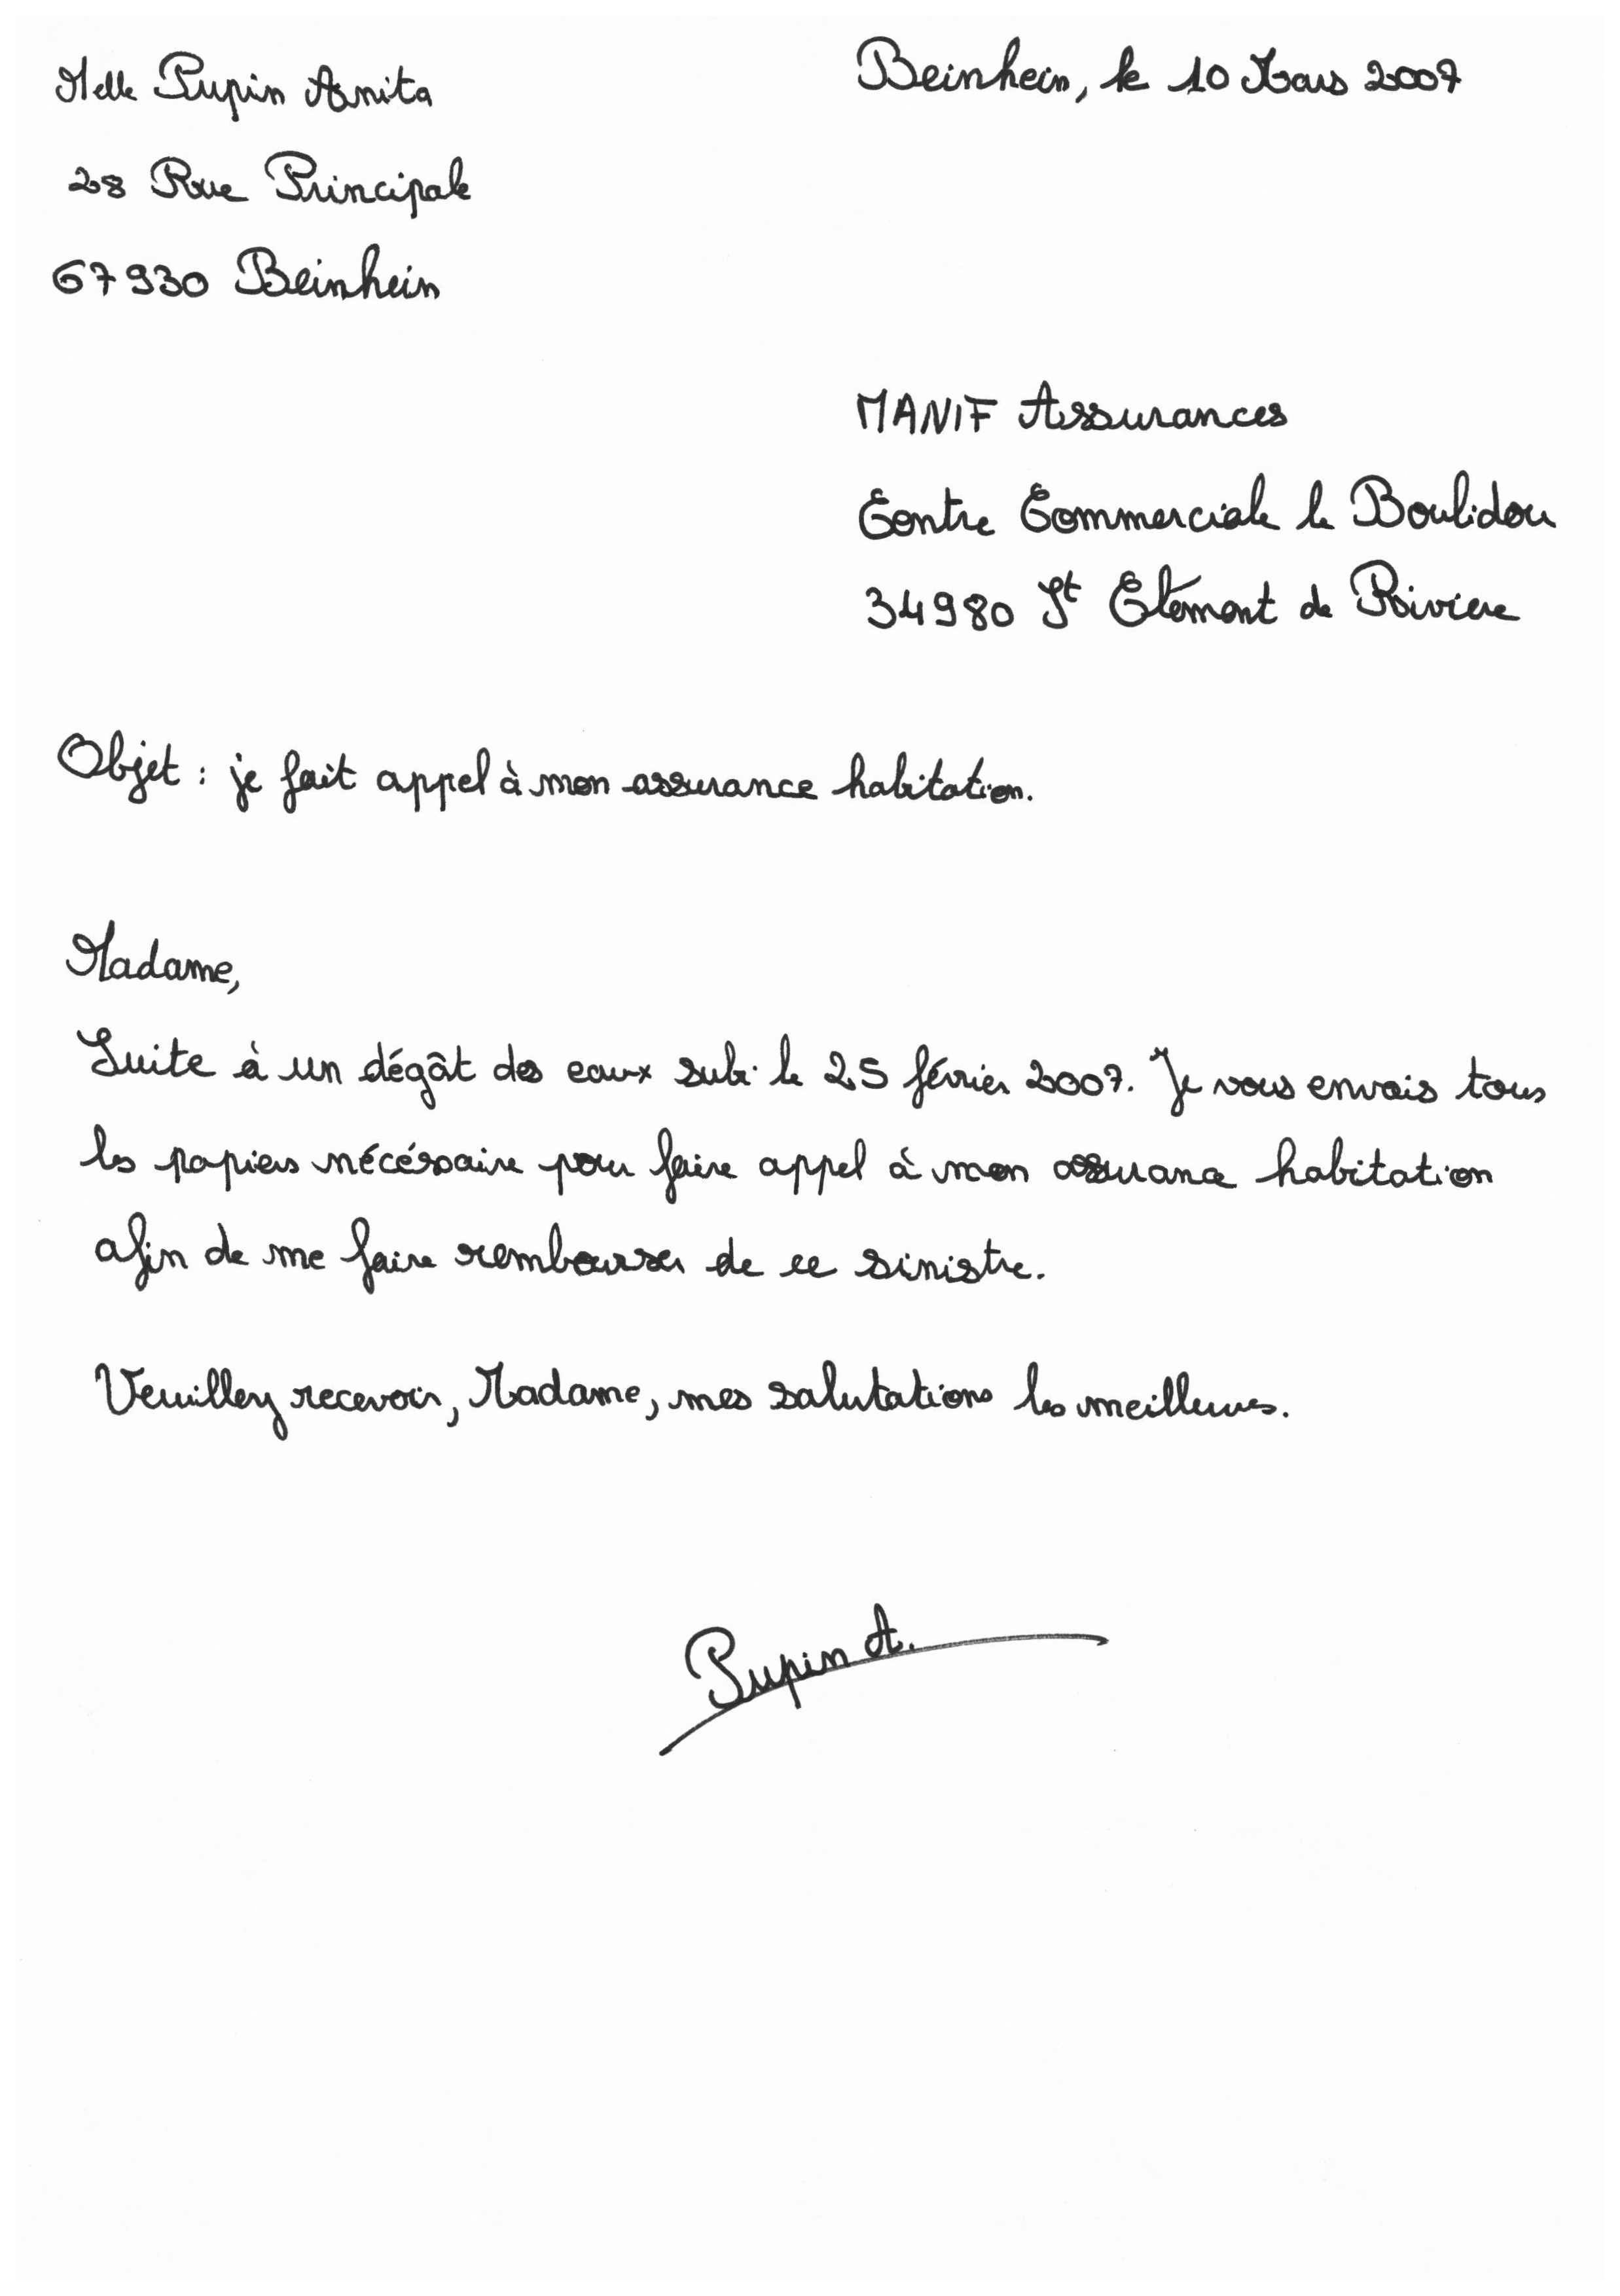 Melle Pupin Anita
Beinhein, le 10 Mars 2007
28 Rue Principale
67930 Beinhein
MANIF Assurances
Centre Commerciale le Boulidou
34980 St Clément de Riviere
Objet : je fait appel à mon assurance habitation.
Madame,
Suite à un dégât des eaux subi le 25 février 2007. Je vous envais tous
les papiers nécéssaire pour faire appel à mon assurance habitation
afin de me faire rembourser de ce sinistre.
Veuillez recevoir, Madame, mes salutations les meilleures.
Pupin A.